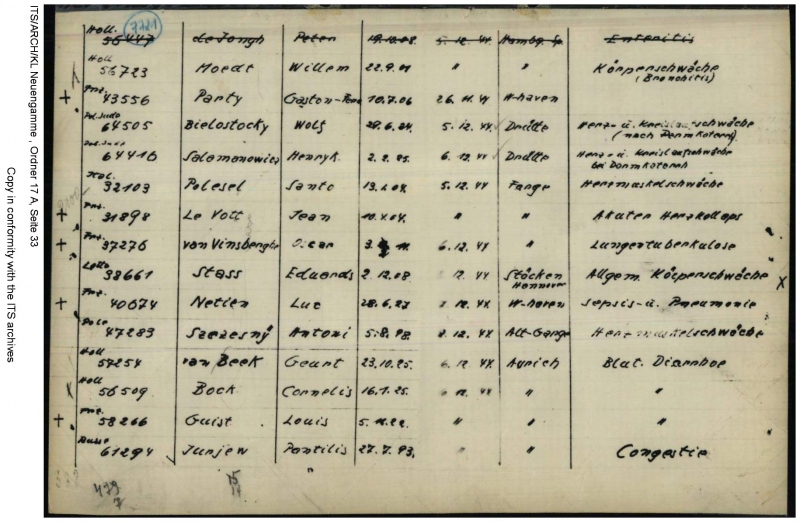 ITS/ARCH/KL Neuengamme, Ordner 17 A, Seite 33
Copy in conformity with the ITS archives
7721
Holl. 56447 de Jongh Peter 5. 12. 44 Hambg. Sp. Enteritis
Holl 56723 Moedt Willem 22.9.01 " " Körperschwäche (Bronchitis)
+ Frz. 43556 Party Gaston- 10.7.06 26. 11. 44 W-haven
Pol. Jude 64505 Bielostocky Wolf 5. 12. 44 Drütte Herz- u. Kreislaufschwäche (nach Darmkatarrh)
Pol. Jude 64416 Salomonowicz Henryk. 2. 2. 25. 6. 12. 44 Drütte Herz- u. Kreislaufschwäche bei Darmkatarrh
Ital. 32103 Polesel Santo 13.4.04. 5. 12. 44 Farge Herzmuskelschwäche
+ Frz. 31898 Le Vott Jean 10.4.04. " " Akuter Herzkollaps
+ Frz. 37276 van Vinsberghe Oscar 6. 12. 44 " Lungentuberkulose
Lette 38661 Stass Eduards 2.12.08 12. 44 Stöcken Hannover Allgem. Körperschwäche X
+ Frz. 40074 Netlen Luc 28.6.27 12. 44 W-haven Sepsis- u. Pneumonie
Pole 47283 Szczesny Antoni 5.8.98. 12. 44 Alt-Garge Herzmuskelschwäche
Holl 57254 van Beek Geurt 23.10.25. 6. 12. 44 Aurich Blut. Diarrhoe
Holl 56509 Bock Cornelis 16.1.25. 12. 44 " "
+ Frz. 58266 Guist Louis 5. 11. 22. " " "
Russe 61294 Jurjew Pantilis 27.7.93. " " Congestie
479
7
15